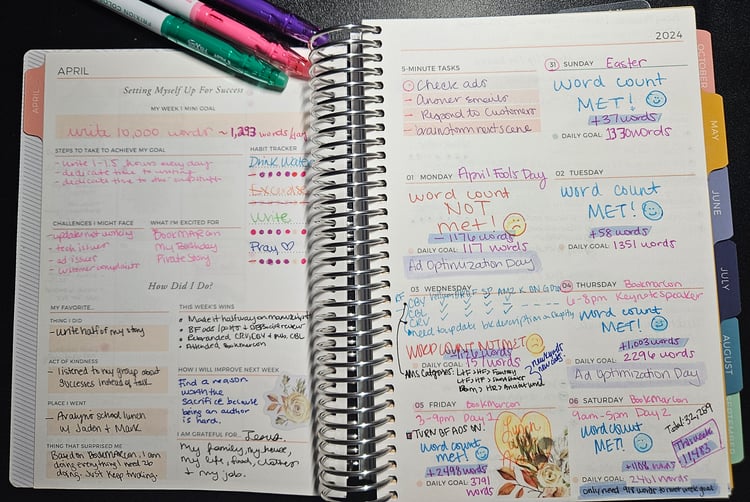 FRIXION COL
APRIL
APRIL
Setting Myself Up For Success
MY WEEK 1 MINI GOAL
write 10,000 words ~ 1,293 words/day
STEPS TO TAKE TO ACHIEVE MY GOAL
- write 1-1.5 hours every day
- dedicate time to writing
- dedicate time to the
HABIT TRACKER
Drink Water
Exercise
Write
Pray
CHALLENGES I MIGHT FACE
- updates not working
- tech issues
- ad issues
- customer complaints
WHAT I'M EXCITED FOR
Bookmarcon
My Birthday
Private Story
How Did I Do?
MY FAVORITE...
THING I DID
- Write half of my story
ACT OF KINDNESS
- listened to my group about successes instead of talk
PLACE I WENT
- Avalyn's school lunch w/ Jaden + Mark
THING THAT SURPRISED ME
Based on Bookmarcon, I am doing everything I need to be doing. Just keep
THIS WEEK'S WINS
Made it halfway on manuscript
Rebranded CRV, CBV + pub CBL
Attended Bookmarcon
HOW I WILL IMPROVE NEXT WEEK
Find a reason
worth the
sacrifice because
being an author
is hard.
I AM GRATEFUL FOR... Jesus,
my family, my house,
my life, food, clothes
+ my job.
2024
5-MINUTE TASKS
Check ads
- Answer Emails
- Respond to Customers
- brainstorm next scene
31 SUNDAY Easter
word count
MET!
+37 words
DAILY GOAL: 1330 words
01 MONDAY April Fools Day
word count
NOT
met!
- 1176 words
DAILY GOAL: 1171 words
Ad Optimization Day
02 TUESDAY
word count
MET!
+58 words
DAILY GOAL: 1351 words
03 WEDNESDAY
CBV
CBL
CRV
need to update bk description on Shopify
WORD COUNT NOT MET
DAILY GOAL: 751 words
2 new words
new cats.
04 THURSDAY Bookmarcon
6-8pm Keynote Speaker
word count
MET!
+1,003 words
DAILY GOAL: 2296 words
Ad Optimization Day
05 FRIDAY Bookmarcon
3-9pm Day 1
TURN BF ADS ON!
word count
met!
+2498 words
DAILY GOAL: 3791
words
06 SATURDAY Bookmarcon
9am-5pm Day 2
word count
MET!
Total: 32,259
This week
11,483
DAILY GOAL: 2401 words
OCTOBER
MAY
JUNE
JULY
AUGUST
SEPTEMBER